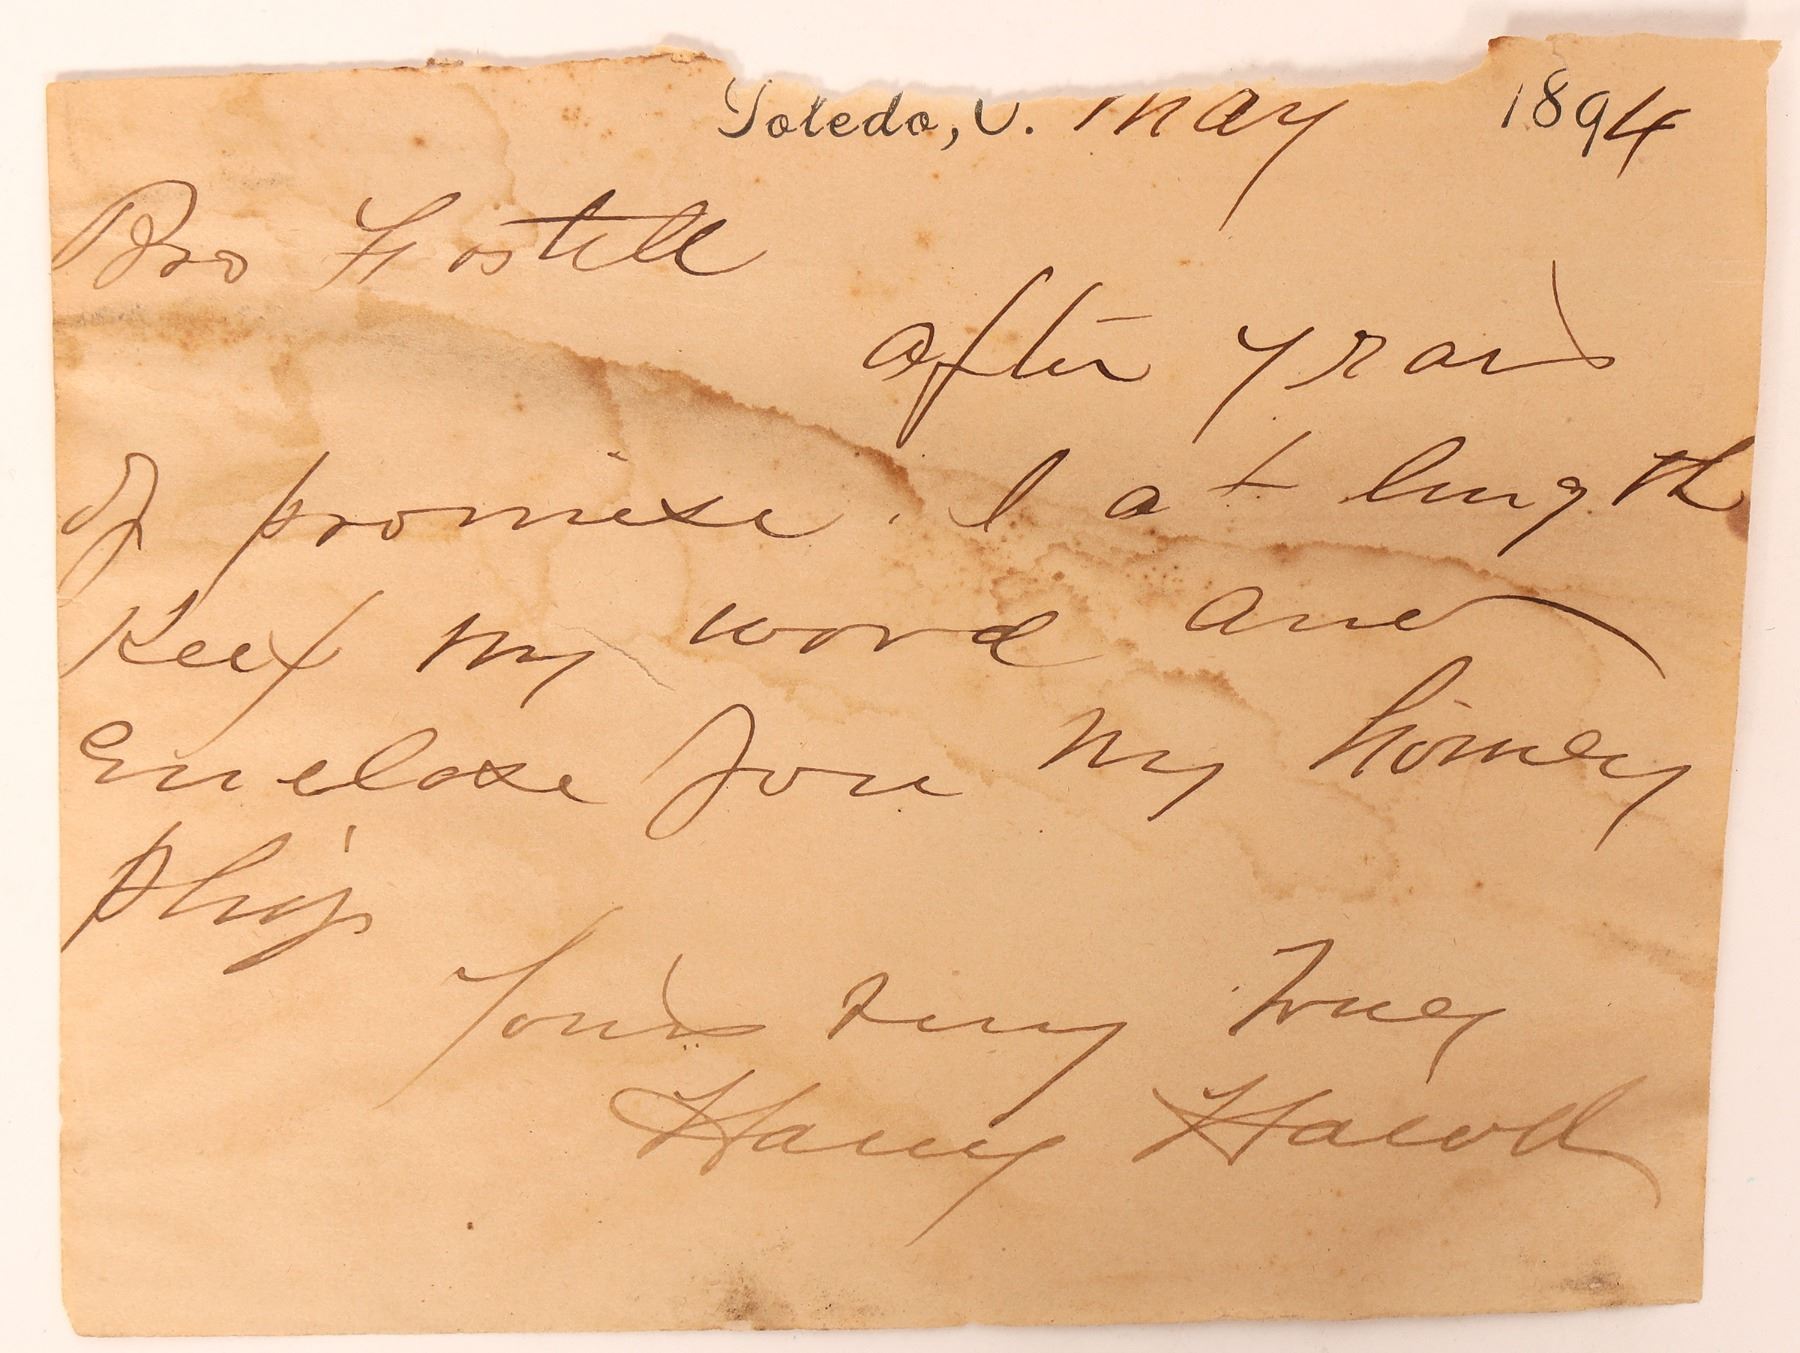 Toledo, O. May 1894
Bro Fostell
after years
of promise. I at length
Keep my word and
Enclose you my homely
phiz
Yours very truly
Harry Harold